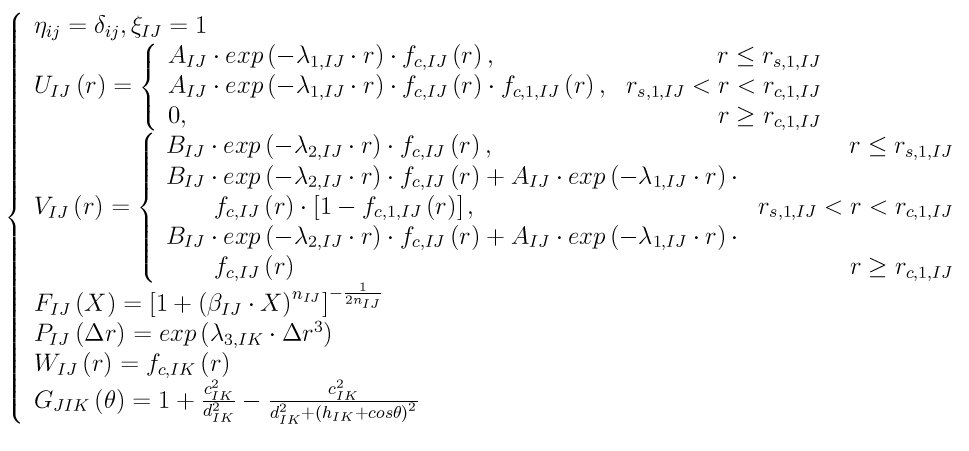 η_{ij} = δ_{ij}, ξ_{IJ} = 1
U_{IJ} (r) = { A_{IJ} · exp (−λ_{1,IJ} · r) · f_{c,IJ} (r) , r ≤ r_{s,1,IJ}
A_{IJ} · exp (−λ_{1,IJ} · r) · f_{c,IJ} (r) · f_{c,1,IJ} (r) , r_{s,1,IJ} < r < r_{c,1,IJ}
0, r ≥ r_{c,1,IJ}
V_{IJ} (r) = { B_{IJ} · exp (−λ_{2,IJ} · r) · f_{c,IJ} (r) , r ≤ r_{s,1,IJ}
B_{IJ} · exp (−λ_{2,IJ} · r) · f_{c,IJ} (r) + A_{IJ} · exp (−λ_{1,IJ} · r) ·
f_{c,IJ} (r) · [1 − f_{c,1,IJ} (r)] , r_{s,1,IJ} < r < r_{c,1,IJ}
B_{IJ} · exp (−λ_{2,IJ} · r) · f_{c,IJ} (r) + A_{IJ} · exp (−λ_{1,IJ} · r) ·
f_{c,IJ} (r) r ≥ r_{c,1,IJ}
F_{IJ} (X) = [1 + (β_{IJ} · X)^{n_{IJ}}]^{−\frac{1}{2n_{IJ}}}
P_{IJ} (Δr) = exp (λ_{3,IK} · Δr^3)
W_{IJ} (r) = f_{c,IK} (r)
G_{JIK} (θ) = 1 + \frac{c_{IK}^2}{d_{IK}^2} − \frac{c_{IK}^2}{d_{IK}^2+(h_{IK}+cosθ)^2}